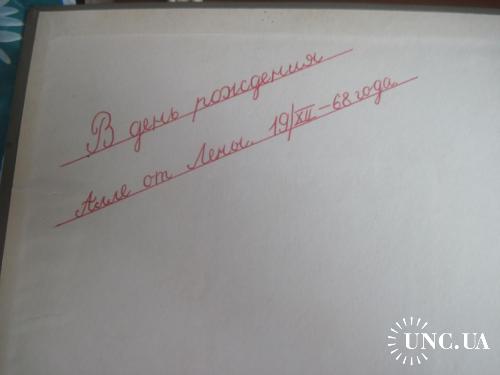 В день рождения
Алле от Лены. 19/XII–68 года.
UNC.UA